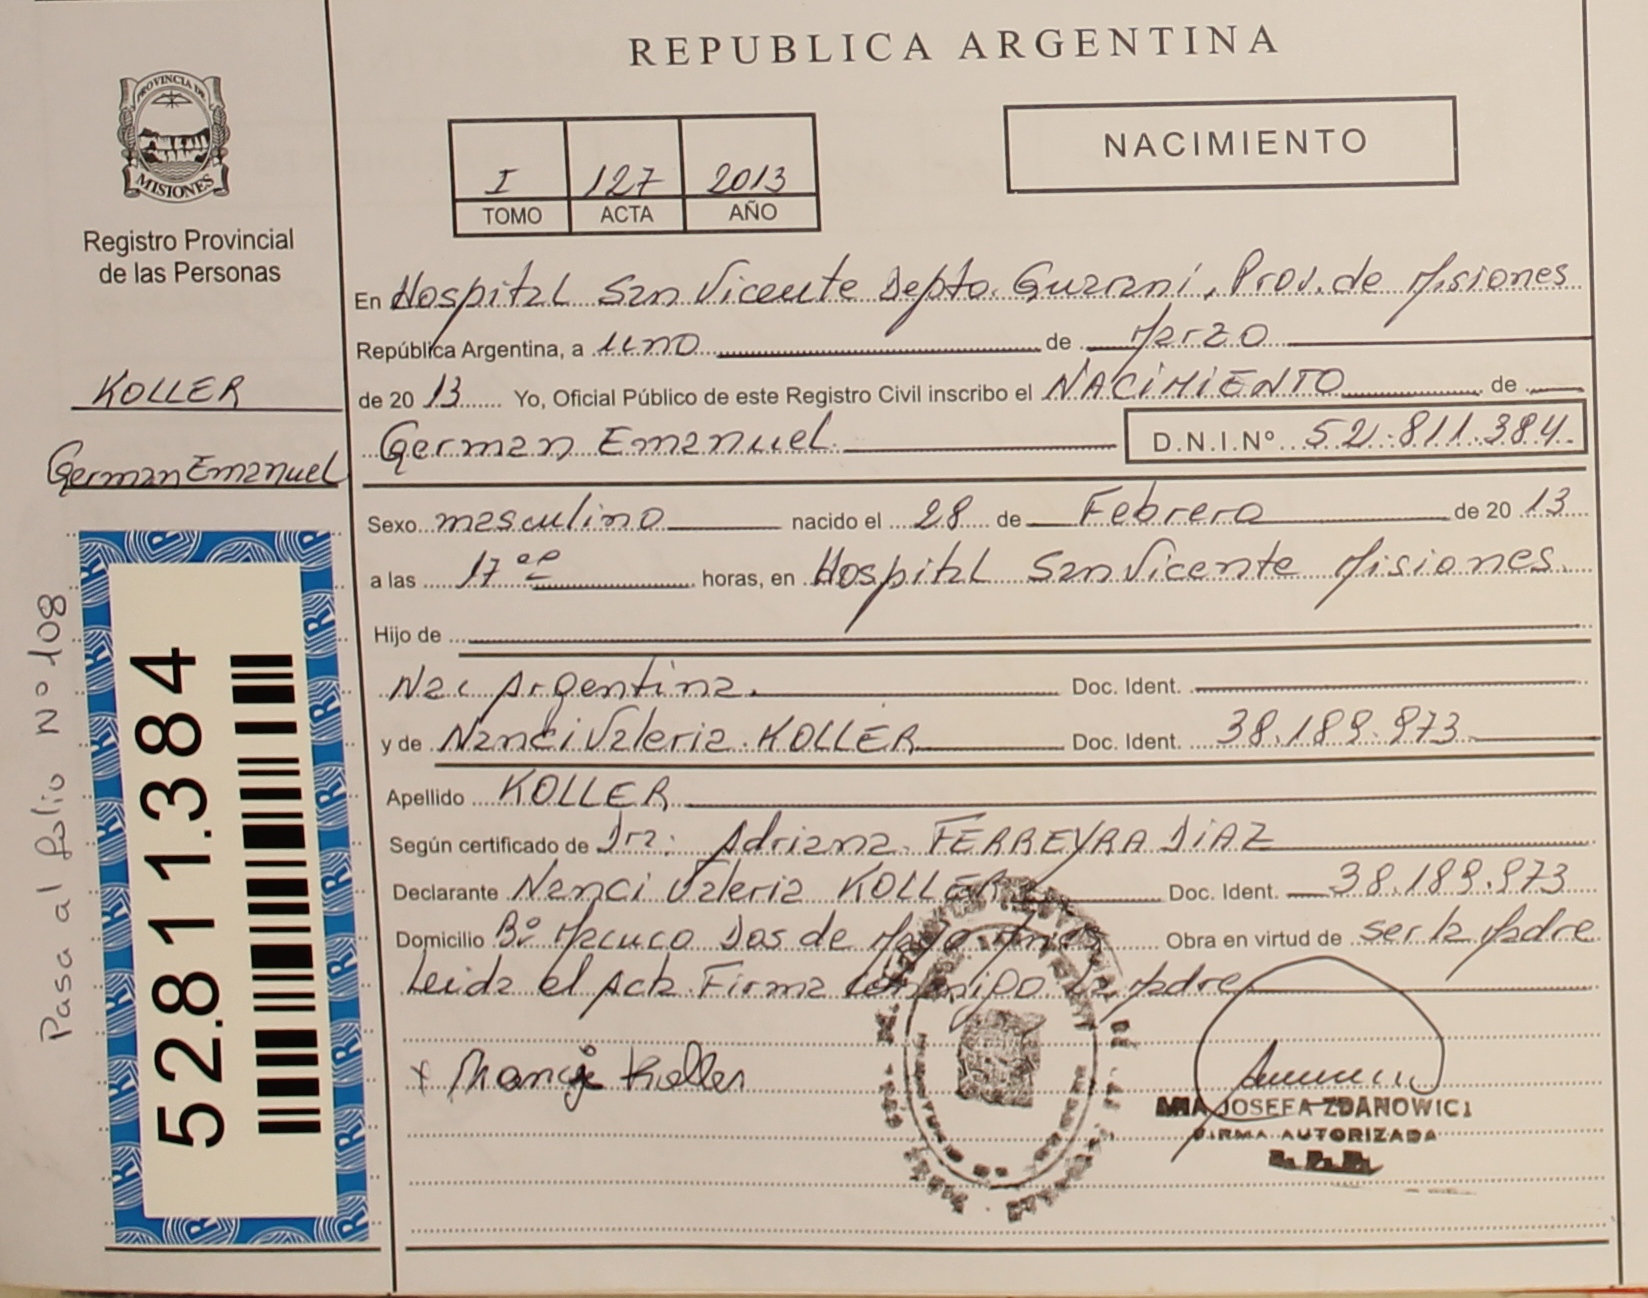 REPUBLICA ARGENTINA
PROVINCIA DE
MISIONES
Registro Provincial
de las Personas
NACIMIENTO
I 127 2013
TOMO ACTA AÑO
En Hospital San Vicente Depto. Guarani, Prov. de Misiones
República Argentina, a uno de Marzo
de 2013 Yo, Oficial Público de este Registro Civil inscribo el NACIMIENTO de
German Emanuel D.N.I.Nº 52.811.384
KOLLER
German Emanuel
Sexo masculino nacido el 28 de Febrero de 2013
a las 17 horas, en Hospital San Vicente Misiones.
Hijo de
Nac Argentina. Doc. Ident.
y de Nanci Valeria KOLLER Doc. Ident. 38.189.973
Apellido KOLLER
Según certificado de Dra: Adriana FERREYRA DIAZ
Declarante Nanci Valeria KOLLER Doc. Ident. 38.189.973
Domicilio Bº Macuco Dos de Mayo Mnes Obra en virtud de ser la Madre
Leida el Acta Firma conmigo la Madre
x Koller
JOSEFA ZDANOWICZ
FIRMA AUTORIZADA
52.811.384
Pasa al folio Nº 108